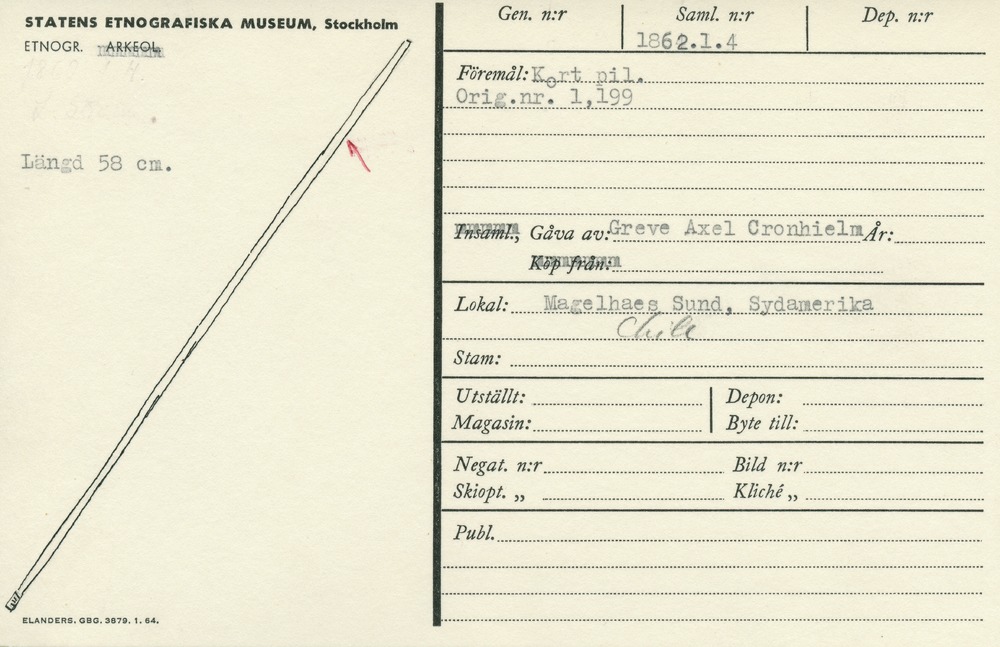 STATENS ETNOGRAFISKA MUSEUM, Stockholm
ETNOGR. ARKEOL.
Längd 58 cm.
ELANDERS. GBG. 3679. 1. 64.
Gen. n:r Saml. n:r Dep. n:r
1862.1.4
Föremål: Kort pil.
Orig.nr. 1,199
Insaml., Gåva av: Greve Axel Cronhielm År:
Köp från:
Lokal: Magelhaes Sund, Sydamerika
Chile
Stam:
Utställt: Depon:
Magasin: Byte till:
Negat. n:r Bild n:r
Skiopt. „ Kliché „
Publ.